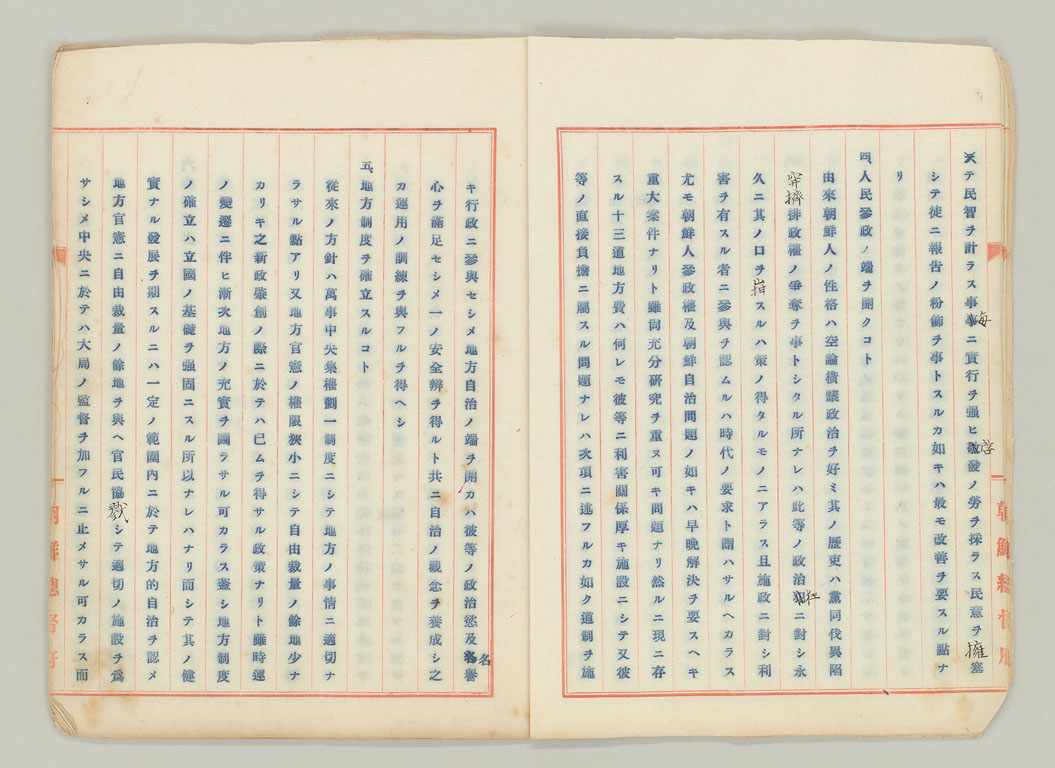 テ民智ヲ計ラス事每ニ實行ヲ强ヒ啓發ノ勞ヲ採ラス民意ヲ擁塞
シテ徒ニ報告ノ粉飾ヲ事トスルカ如キハ最モ改善ヲ要スル點ナ
リ
四、人民參政ノ端ヲ開クコト
由來朝鮮人ノ性格ハ空論橫議政治ヲ好ミ其ノ歷史ハ黨同伐異陷
穽擠排政權ノ爭奪ヲ事トシタル所ナレハ此等ノ政治ニ對シ永
久ニ其ノ口ヲ箝スルハ策ノ得タルモノニアラス且施政ニ對シ利
害ヲ有スル者ニ參與ヲ認ムルハ時代ノ要求ト謂ハサルヘカラス
尤モ朝鮮人參政權及朝鮮自治問題ノ如キハ早晚解決ヲ要スヘキ
重大案件ナリト雖尙充分硏究ヲ重ヌ可キ問題ナリ然ルニ現ニ存
スル十三道地方費ハ何レモ彼等ニ利害關係厚キ施設ニシテ又彼
等ノ直接負擔ニ屬スル問題ナレハ次項ニ述フルカ如ク道制ヲ施
朝鮮總督府
キ行政ニ參與セシメ地方自治ノ端ヲ開カハ彼等ノ政治慾及名譽
心ヲ滿足セシメ一ノ安全辨ヲ得ルト共ニ自治ノ觀念ヲ養成シ之
カ運用ノ訓練ヲ與フルヲ得ヘシ
五、地方制度ヲ確立スルコト
從來ノ方針ハ萬事中央集權劃一制度ニシテ地方ノ事情ニ適切ナ
ラサル點アリ又地方官憲ノ權限狹小ニシテ自由裁量ノ餘地少ナ
カリキ之新政肇創ノ際ニ於テハ已ムヲ得サル政策ナリト雖時運
ノ變遷ニ伴ヒ漸次地方ノ充實ヲ圖ラサル可カラス蓋シ地方制度
ノ確立ハ立國ノ基礎ヲ强固ニスル所以ナレハナリ而シテ其ノ健
實ナル發展ヲ期スルニハ一定ノ範圍內ニ於テ地方的自治ヲ認メ
地方官憲ニ自由裁量ノ餘地ヲ與ヘ官民協戮シテ適切ノ施設ヲ爲
サシメ中央ニ於テハ大局ノ監督ヲ加フルニ止メサル可カラス而
朝鮮總督府